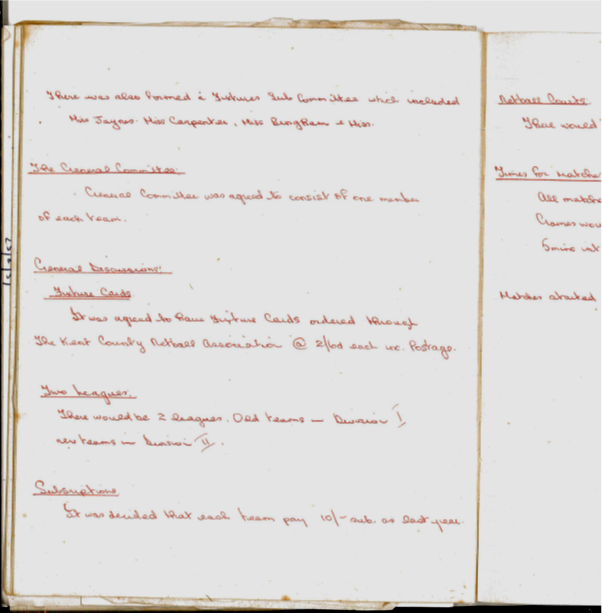 There was also formed a Fixtures Sub Committee which included
Miss Jaynes. Miss Carpenter, Miss Bingham & Miss.
The General Committee.
General Committee was agreed to consist of one member
of each team.
General Discussions:
Fixture Cards
It was agreed to have Fixture Cards ordered through
The Kent County Netball Association @ 2/6d each inc. Postage.
Two Leagues.
There would be 2 leagues. Old teams in Division I
new teams in Division II.
Subscriptions
It was decided that each team pay 10/- sub. as last year.
Netball Courts
There would
Times for Matche
All matche
Games wou
5 mins int
Matches started